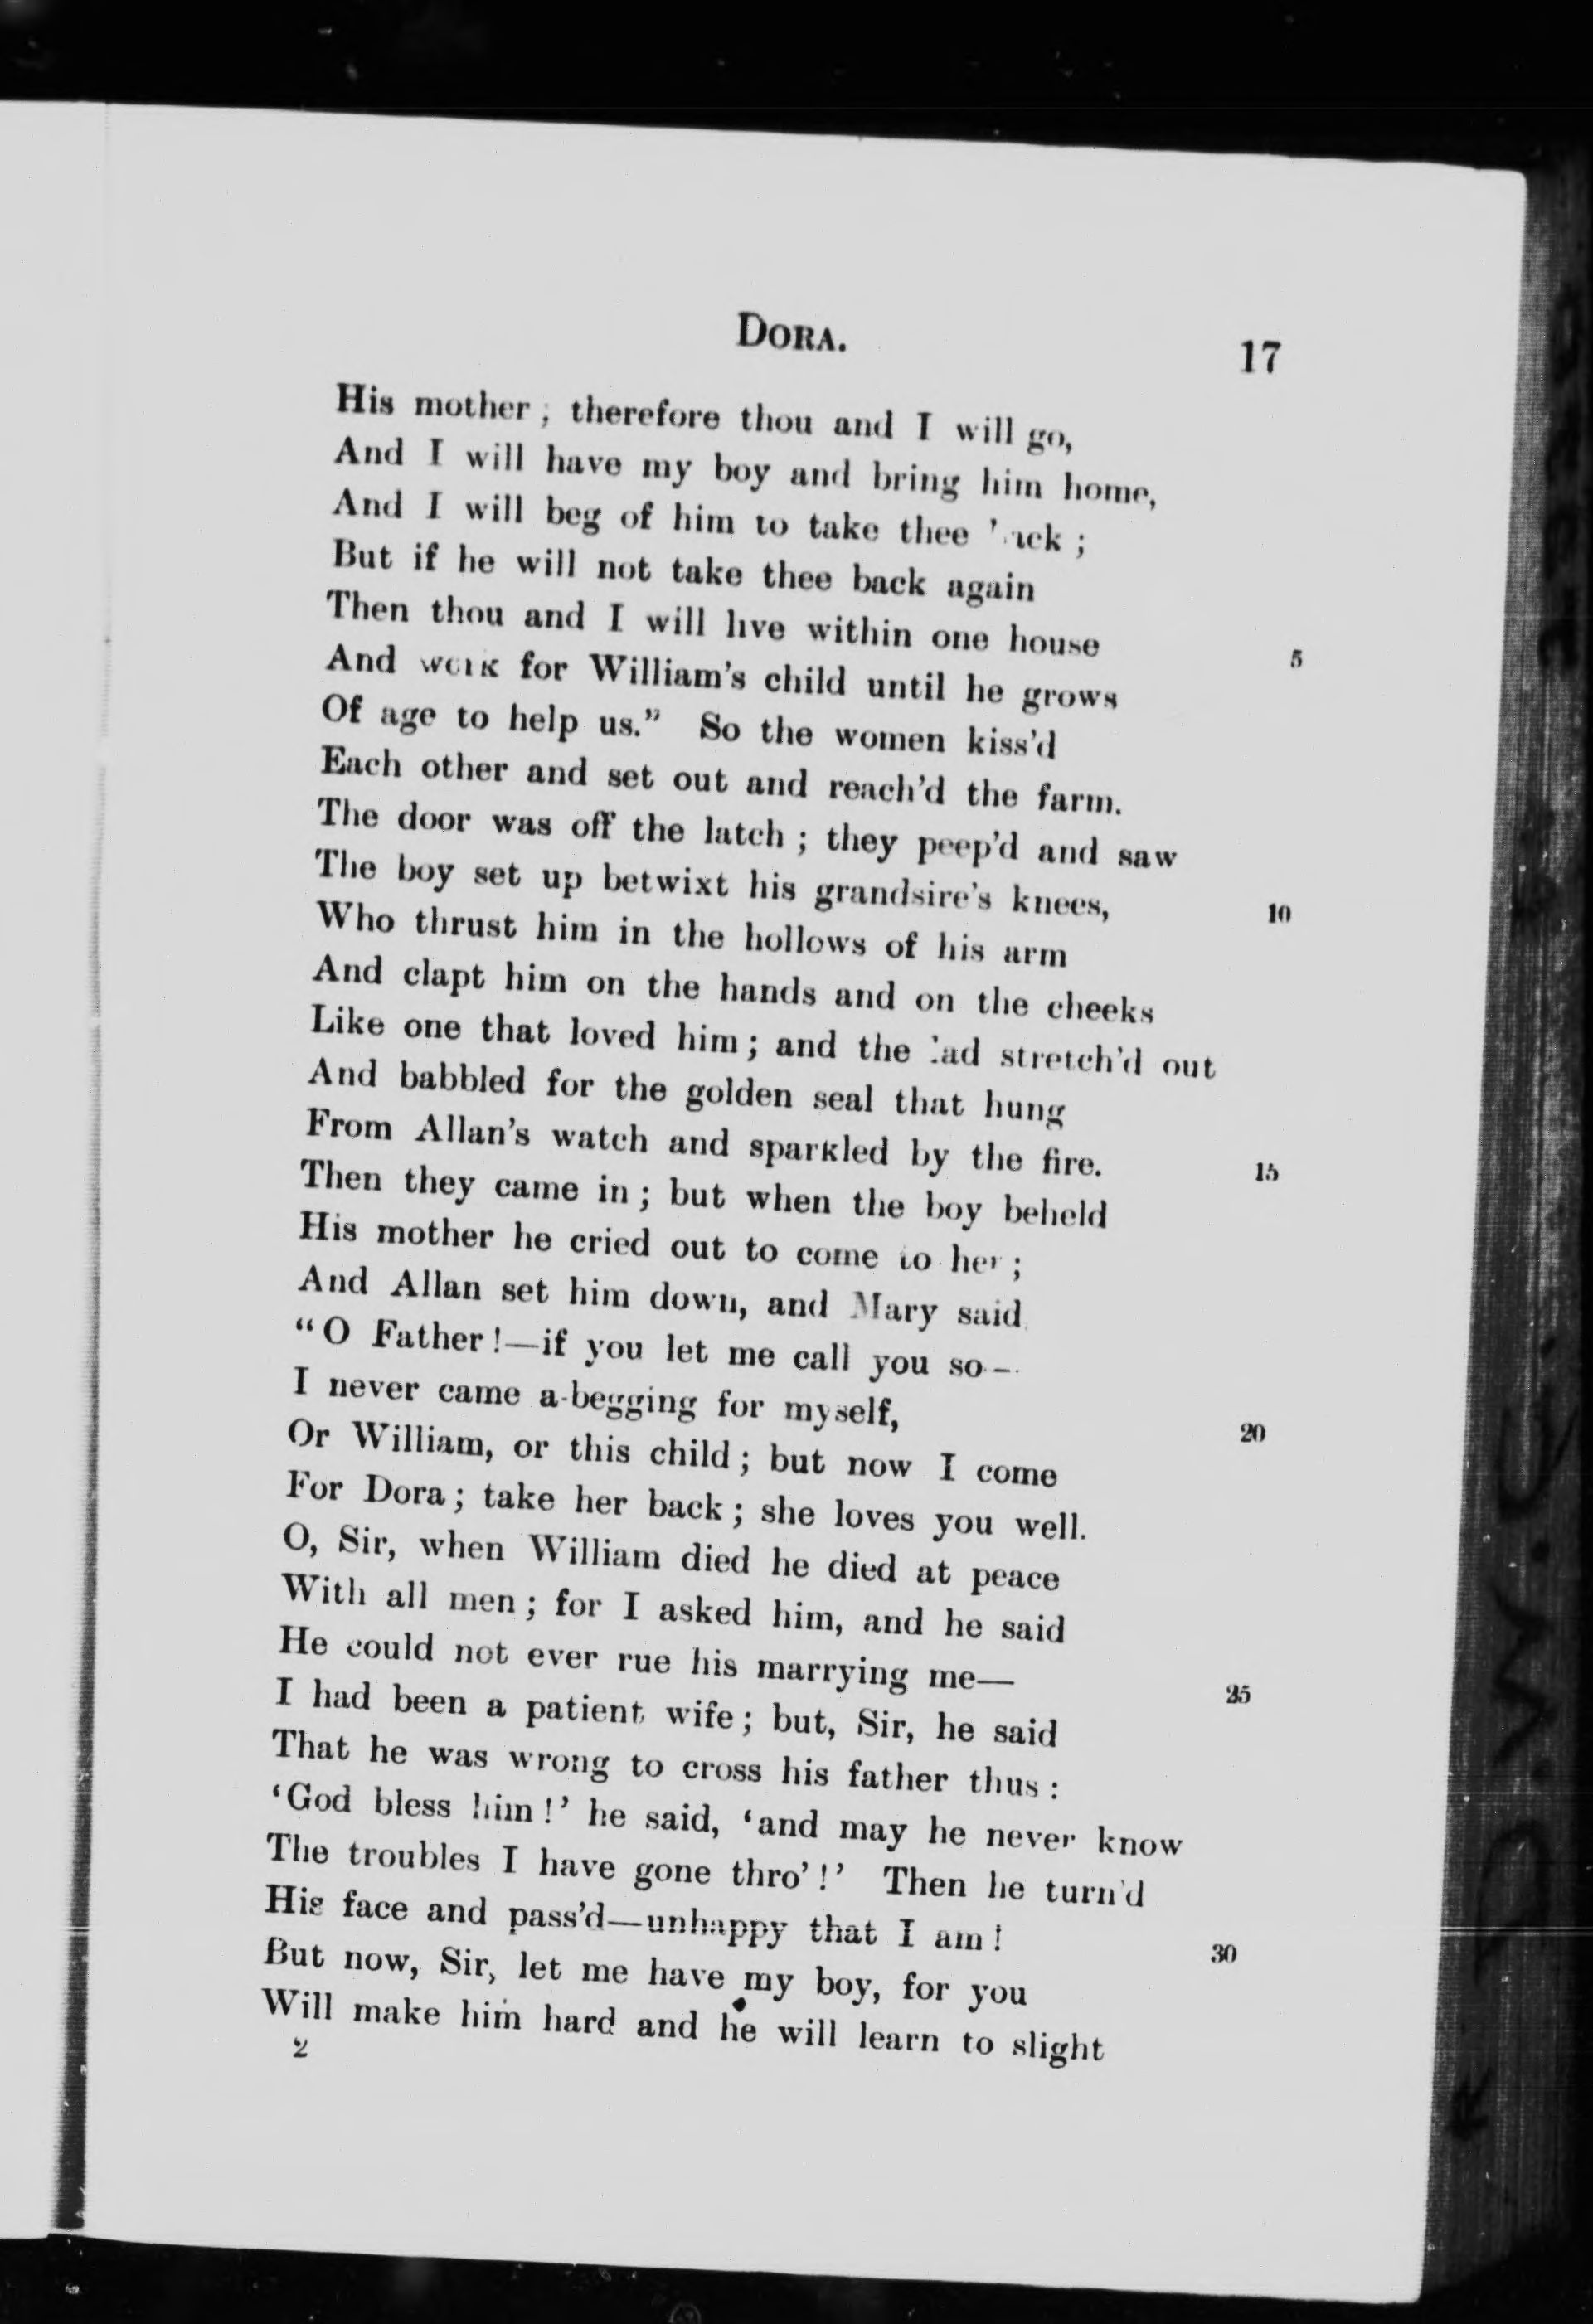 DORA.
17
His mother; therefore thou and I will go,
And I will have my boy and bring him home,
And I will beg of him to take thee back;
But if he will not take thee back again
Then thou and I will live within one house
5
And work for William's child until he grows
Of age to help us." So the women kiss'd
Each other and set out and reach'd the farm.
The door was off the latch; they peep'd and saw
The boy set up betwixt his grandsire's knees,
10
Who thrust him in the hollows of his arm
And clapt him on the hands and on the cheeks
Like one that loved him; and the lad stretch'd out
And babbled for the golden seal that hung
From Allan's watch and sparkled by the fire.
15
Then they came in; but when the boy beheld
His mother he cried out to come to her;
And Allan set him down, and Mary said
"O Father!—if you let me call you so—
I never came a-begging for myself,
20
Or William, or this child; but now I come
For Dora; take her back; she loves you well.
O, Sir, when William died he died at peace
With all men; for I asked him, and he said
He could not ever rue his marrying me—
25
I had been a patient wife; but, Sir, he said
That he was wrong to cross his father thus:
'God bless him!' he said, 'and may he never know
The troubles I have gone thro'!' Then he turn'd
His face and pass'd—unhappy that I am!
30
But now, Sir, let me have my boy, for you
Will make him hard and he will learn to slight
2